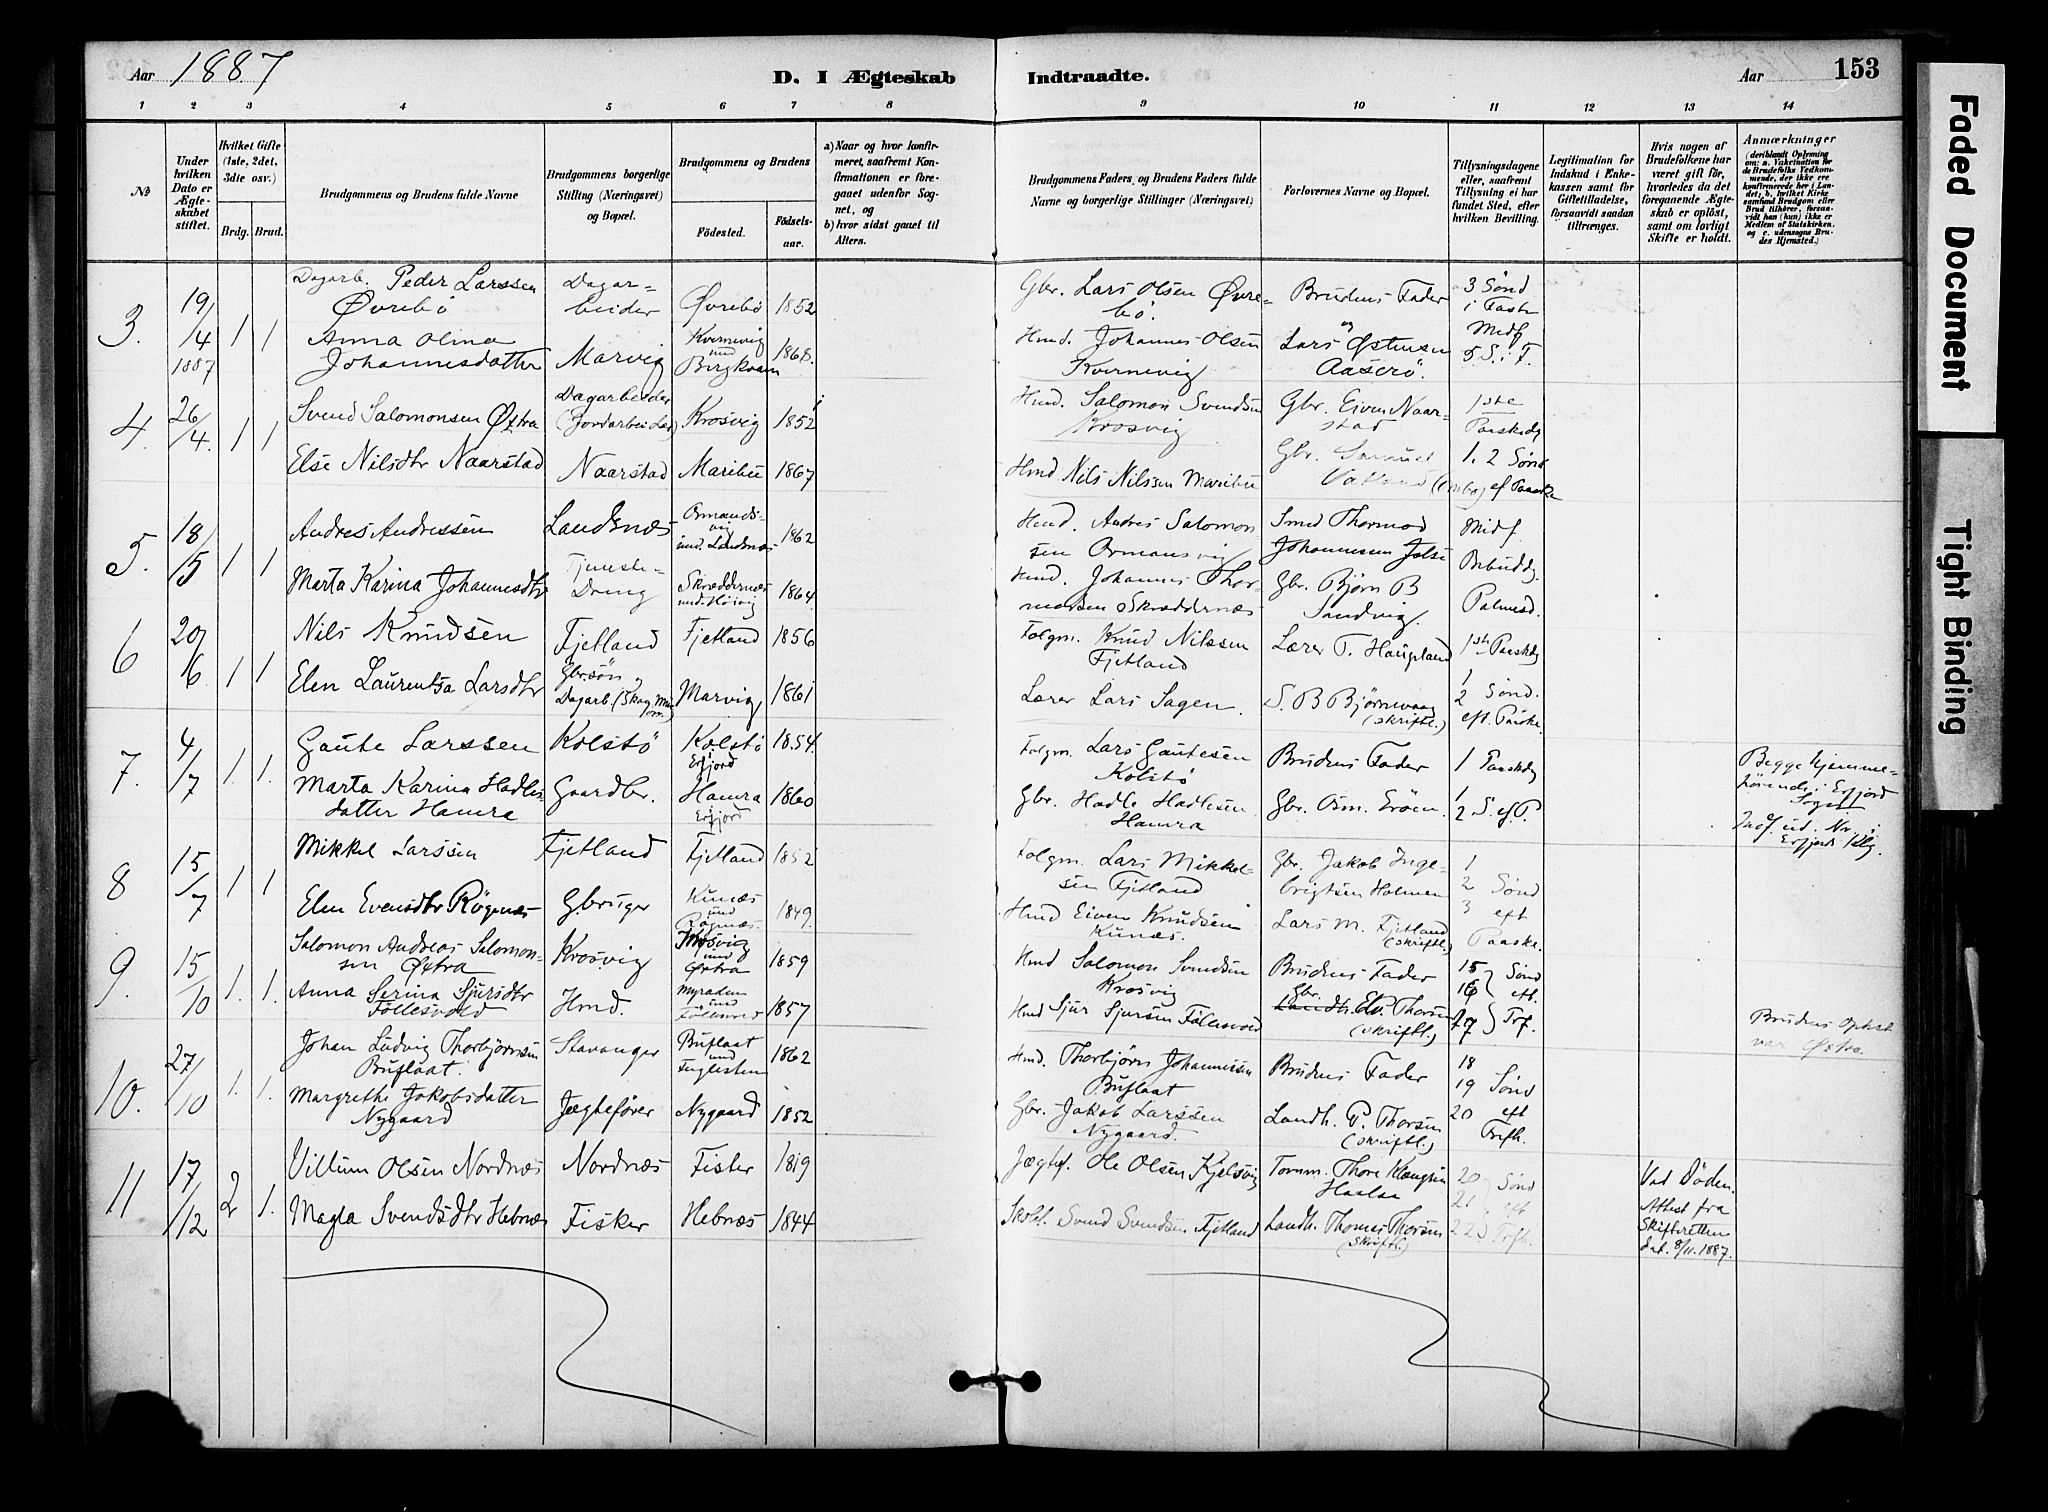 Aar 1887
D. I Ægteskab Indtraadte.
Aar
153
1 2 3 4 5 6 7 8 9 10 11 12 13 14
№
Under hvilken Dato er Ægteskabet stiftet.
Hvilket Gifte (1ste, 2det, 3die osv.)
Brdg. Brud.
Brudgommens og Brudens fulde Navne
Brudgommens borgerlige Stilling (Næringsvei) og Bopæl.
Brudgommens og Brudens
Fødested.
Fødselsaar.
a) Naar og hvor konfirmeret, saafremt Konfirmationen er foregaaet udenfor Sognet, og
b) hvor sidst gaaet til Alters.
Brudgommens Faders og Brudens Faders fulde Navne og borgerlige Stillinger (Næringsvei)
Forlovernes Navne og Bopæl.
Tillysningsdagene eller, saafremt Tillysning ei har fundet Sted, efter hvilken Bevilling.
Legitimation for Indskud i Enkekassen samt for Giftetilladelse, forsaavidt saadan tiltrænges.
Hvis nogen af Brudefolkene har været gift før, hvorledes da det foregaaende Ægteskab er opløst, samt om lovligt Skifte er holdt.
Anmærkninger
(deriblandt Oplysning om: a. Vakcination for de Brudefolks Vedkommende, der ikke ere konfirmerede her i Landet; b. hvilket Kirkesamfund Brudgom eller Brud tilhører, forsaavidt han (hun) ikke er Medlem af Statskirken, og c. udensogns Brudes Hjemsted.)
3. 19/4 1887 1 1
Dagarb. Peder Larssen Øvrebö
Dagarbeider
Øvrebö 1852
Gbr. Lars Olsen Øvrebö.
Brudens Fader
3 Sönd i Faste
Anna Olina Johannesdatter
Marvig
Kvernevig und Bergkvam 1868.
Hmd. Johannes Olsen Kvernevig
og Lars Østensen Aaserö.
Midf. 5 S. i F.
4. 26/4. 1 1
Svend Salomonsen Øxtra
Dagarbeider (Jordarbeider)
Krosvig 1852
Hmd. Salomon Svendsen Krosvig
Gbr. Eiven Naarstad
1ste Paaskedg
Else Nilsdtr Naarstad
Naarstad
Maribu 1867
Hmd Nils Nilssen Maribu
Gbr.
1. 2 Sönd ef Paaske
5. 18/5 1 1
Andres Andressen
Landsnæs
und. Landsnæs 1862
Hmd. Andres Salomonsen Ormansvig
Smed Thormod Johannesen Jelse
Midf
Marta Karina Johannesdtr
Tjenestedreng
Skræddernæs 1864.
Hmd. Johannes Thormodsen Skræddernæs
Gbr. Björn B Sandvig.
Palmesd.
6 20/6. 1 1
Nils Knudsen
Fjetland
Fjetland 1856
Folgm. Knud Nilssen Fjetland
Lærer T. Haugland
1ste Paaskdg
Elen Laurentsa Larsdtr
Gbr.sön, Dagarb.
Marvig 1861
Lærer Lars Sagen.
S. B Björnevaag (skriftl.)
1 2 Sönd. eft. Paaske.
7. 4/7 1. 1.
Gaute Larssen
Kolstö
Kolstö Erfjord 1854.
Folgm. Lars Gautesen Kolstö
Brudens Fader
1 Paaskdg
Begge hjemmehörende i Erfjord Sogn
Marta Karina Hadlesdatter Hamra
Gaardbr.
Hamra Erfjord 1860
Gbr. Hadle Hadlesen Hamra
Gbr. Osm. Eröen.
1 2 S. ef. P.
8 15/7 1 1
Mikkel Larssen
Fjetland
Fjetland 1852
Folgm. Lars Mikkelsen Fjetland
Gbr. Jakob Ingebrigtsen Holmen
1 2 3 Sönd eft Paaske.
Elen Evensdtr Rögenæs
Gbruger
Kunæs und Rögnæs. 1849.
Hmd Eiven Knudsen Kunæs.
Lars M. Fjetland (skriftl.)
9. 15/10 1. 1.
Salomon Andreas Salomonsen Øxtra
Krosvig
Krosvig und Øxtra 1859
Hmd Salomon Svendsen Krosvig
Brudens Fader
15 16 17 Sönd eft. Trf.
Anna Serina Sjursdtr Föllesvold
Hmd.
Myraden und Föllesvold 1857
Hmd Sjur Sjursen Föllesvold
Gbr. Thorsen (skriftl.)
Brudens Opholdst var Øxtra.
10. 27/10 1. 1.
Johan Ludvig Thorbjörnsen Buflaat.
Stavanger
Buflaat und Fuglesten 1862
Hmd. Thorbjörn Johannessen Buflaat
Brudens Fader
18 19 20 Sönd eft Trefh.
Margrethe Jakobsdatter Nygaard
Jægtefører
Nygaard 1852
Gbr. Jakob Larssen Nygaard.
Landh. P. Thorsen (skriftl.)
11 17/12 2 1.
Villum Olsen Nordnæs
Nordnæs
Fister 1819
Jægtef. Ole Olsen Kjelsvig
Tomm. Thore
20 21 22 Sönd eft Trfh.
Ved Döden. Attest fra Skifteretten dat. 8/11. 1887.
Magla Svendsdtr Hebnæs
Fisker
Hebnæs 1844
Skolel. Svend Svendsen Fjetland
Landh. Thomas Thorsen (skriftl.)
Faded Document
Tight Binding